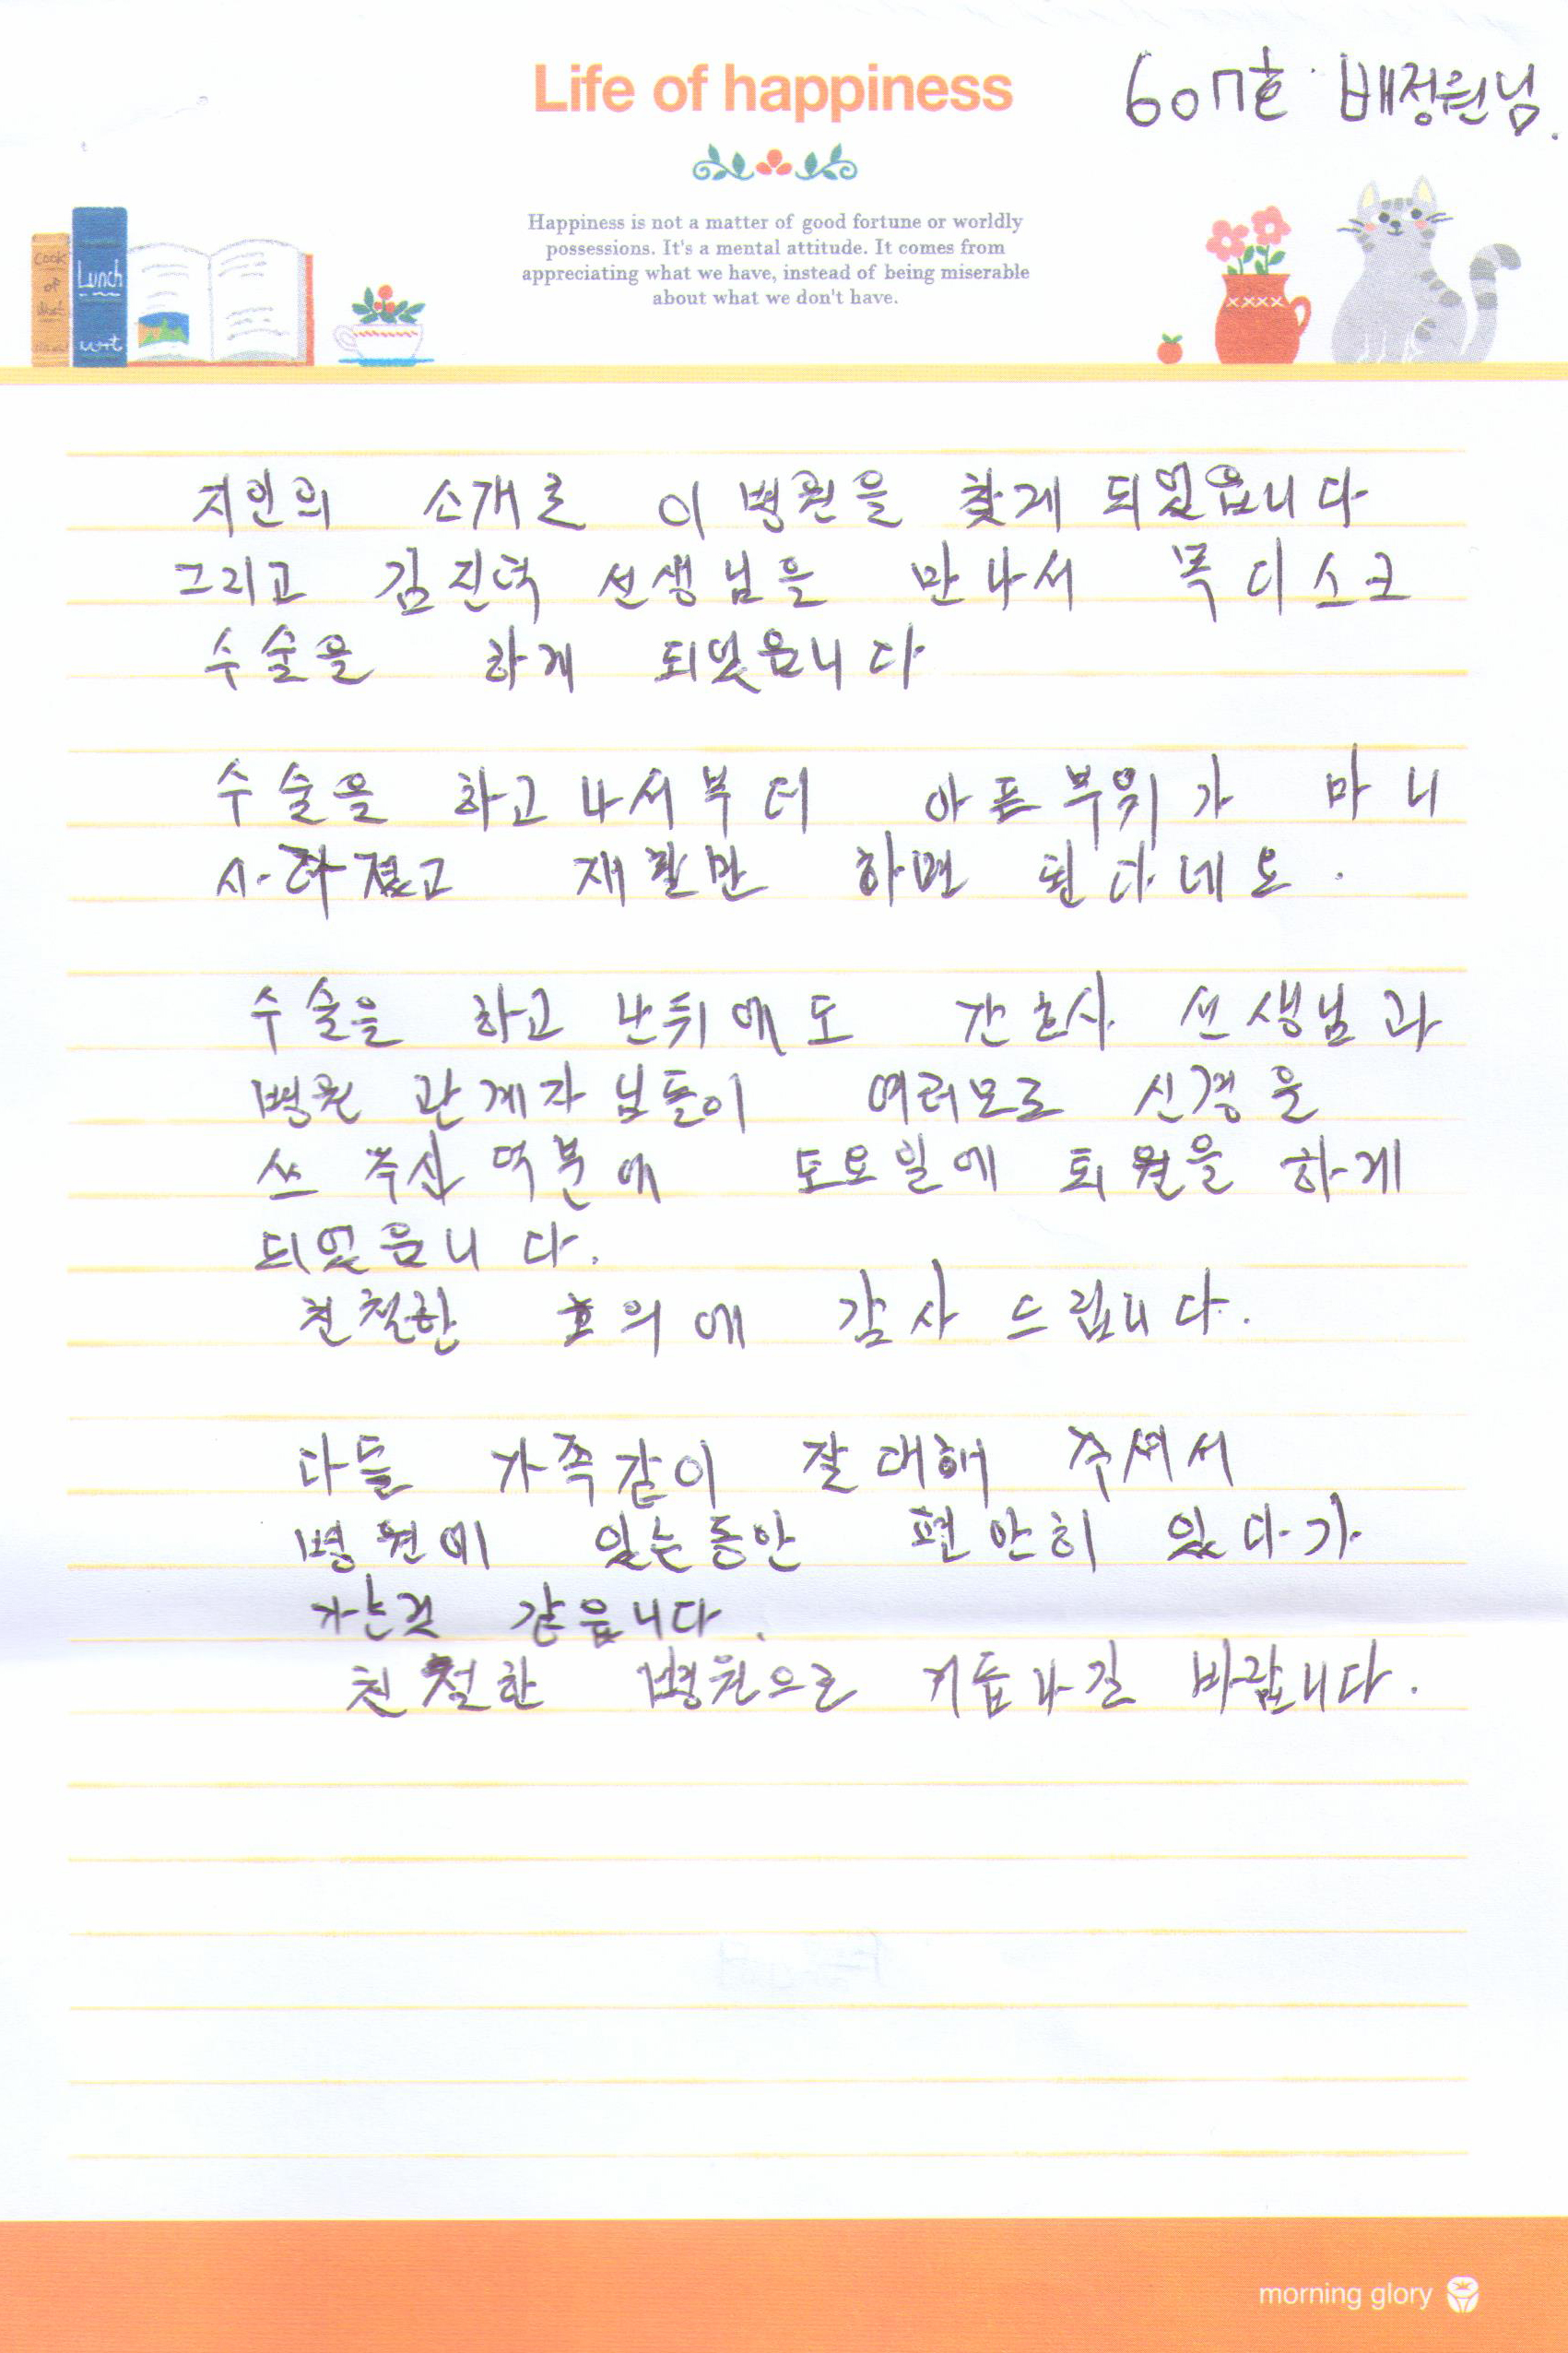 Life of happiness
607호 배정원님.
Happiness is not a matter of good fortune or worldly
possessions. It's a mental attitude. It comes from
appreciating what we have, instead of being miserable
about what we don't have.
Cook
of
Lunch
지인의 소개로 이 병원을 찾게 되었읍니다
그리고 김진덕 선생님을 만나서 목디스크
수술을 하게 되었읍니다
수술을 하고나서부터 아픈부위가 마니
사라졌고 재활만 하면 된다네요.
수술을 하고 난뒤에도 간호사 선생님과
병원 관계자 님들이 여러모로 신경을
쓰 주신 덕분에 토요일에 퇴원을 하게
되었읍니다.
친절한 호의에 감사 드립니다.
다들 가족같이 잘 대해 주셔서
병원에 있는동안 편안히 있다가
가는것 같읍니다.
친절한 병원으로 거듭나길 바랍니다.
morning glory